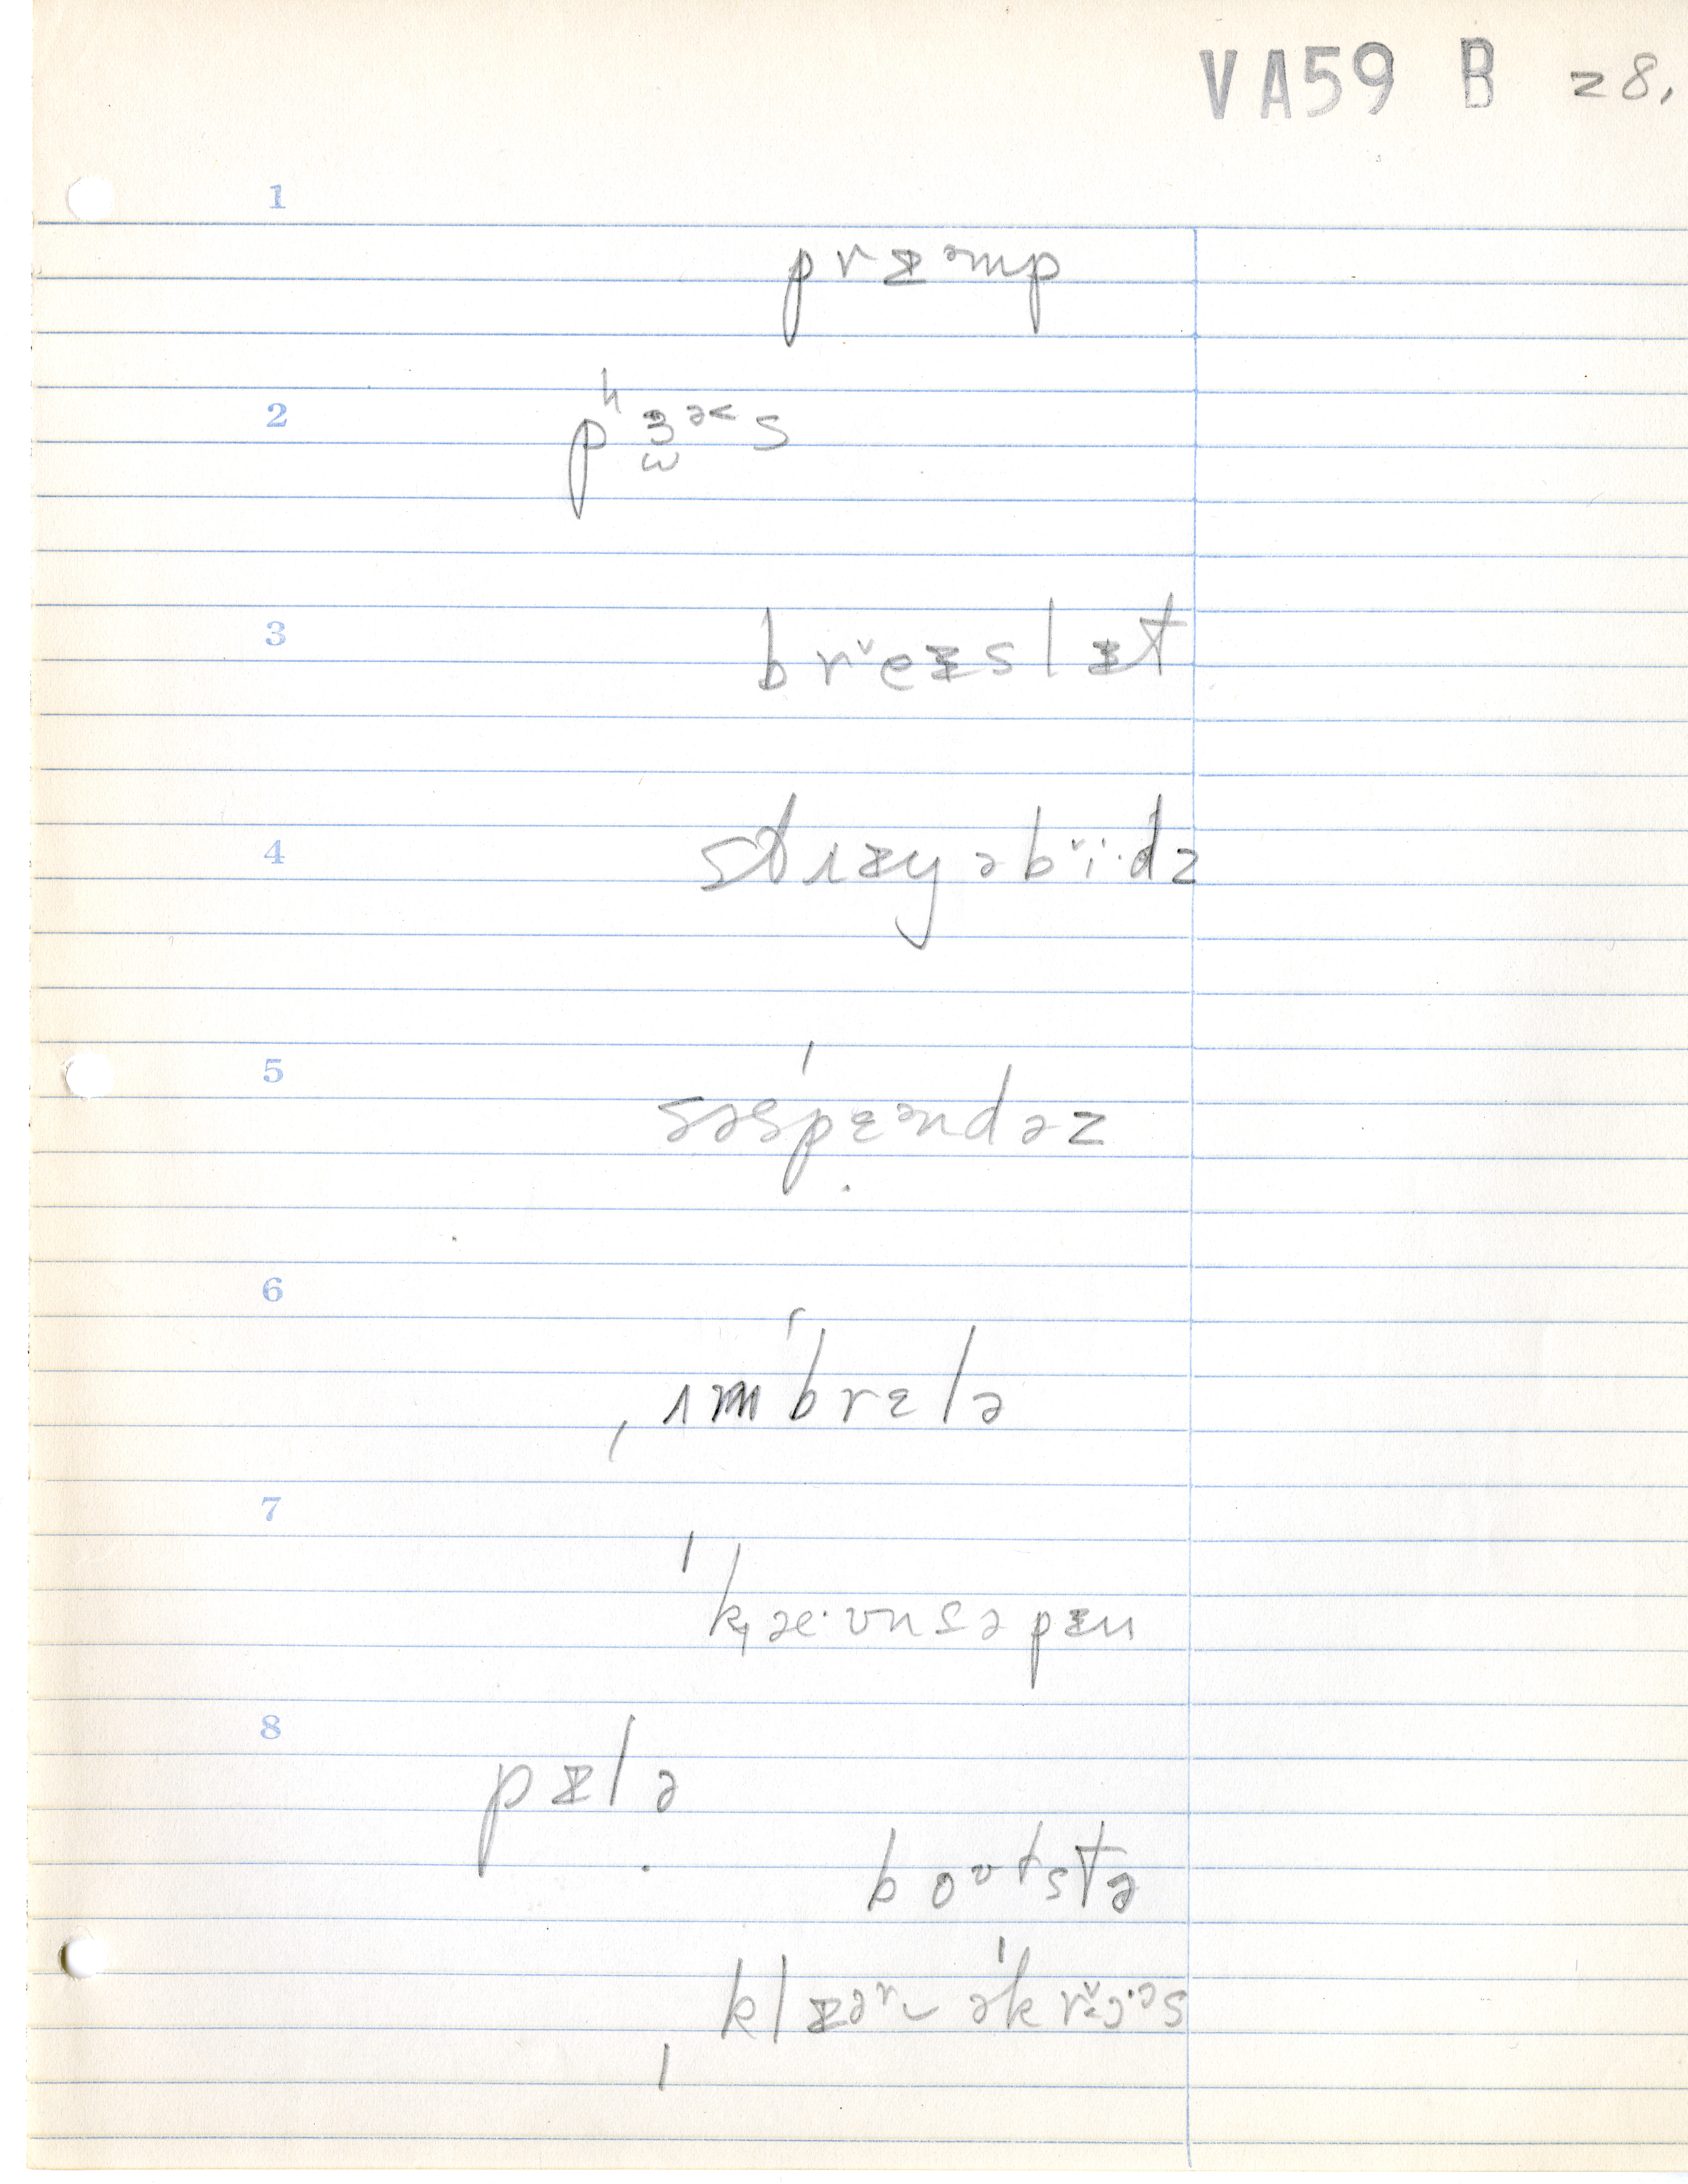 VA59 B 28.
1
prɪᵊmp
2
pʰɜᵊ˂s
3
br̆eɪslɪt
4
stɹɪyəb̆i·dz
5
səsˈpɛᵊndəz
6
ˌʌmˈbrɛlə
7
ˈk̟æ·ʊnsəpɪn
8
pɪlə
boʊtstə
ˌklɪəʳ‿əˈkr̆ɔ·ᵊs